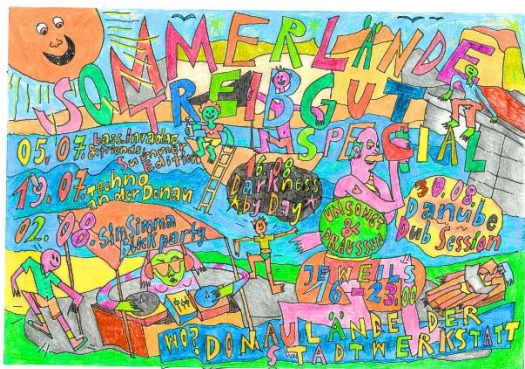 SOMMERLÄNDE
TREIBGUT
INSPECIAL
05.07. bassinvaderz
& friends Sunset
Edition
19.07. Techno
an der Donau
02.08. SimSimma
Blockparty
16.08.
Darkness
by Day
30.08.
Danube
Dub Session
UMSONST
&
DRAUSSEN
JEWEILS
16-23:00
WO? DONAULÄNDE DER
STADTWERKSTATT